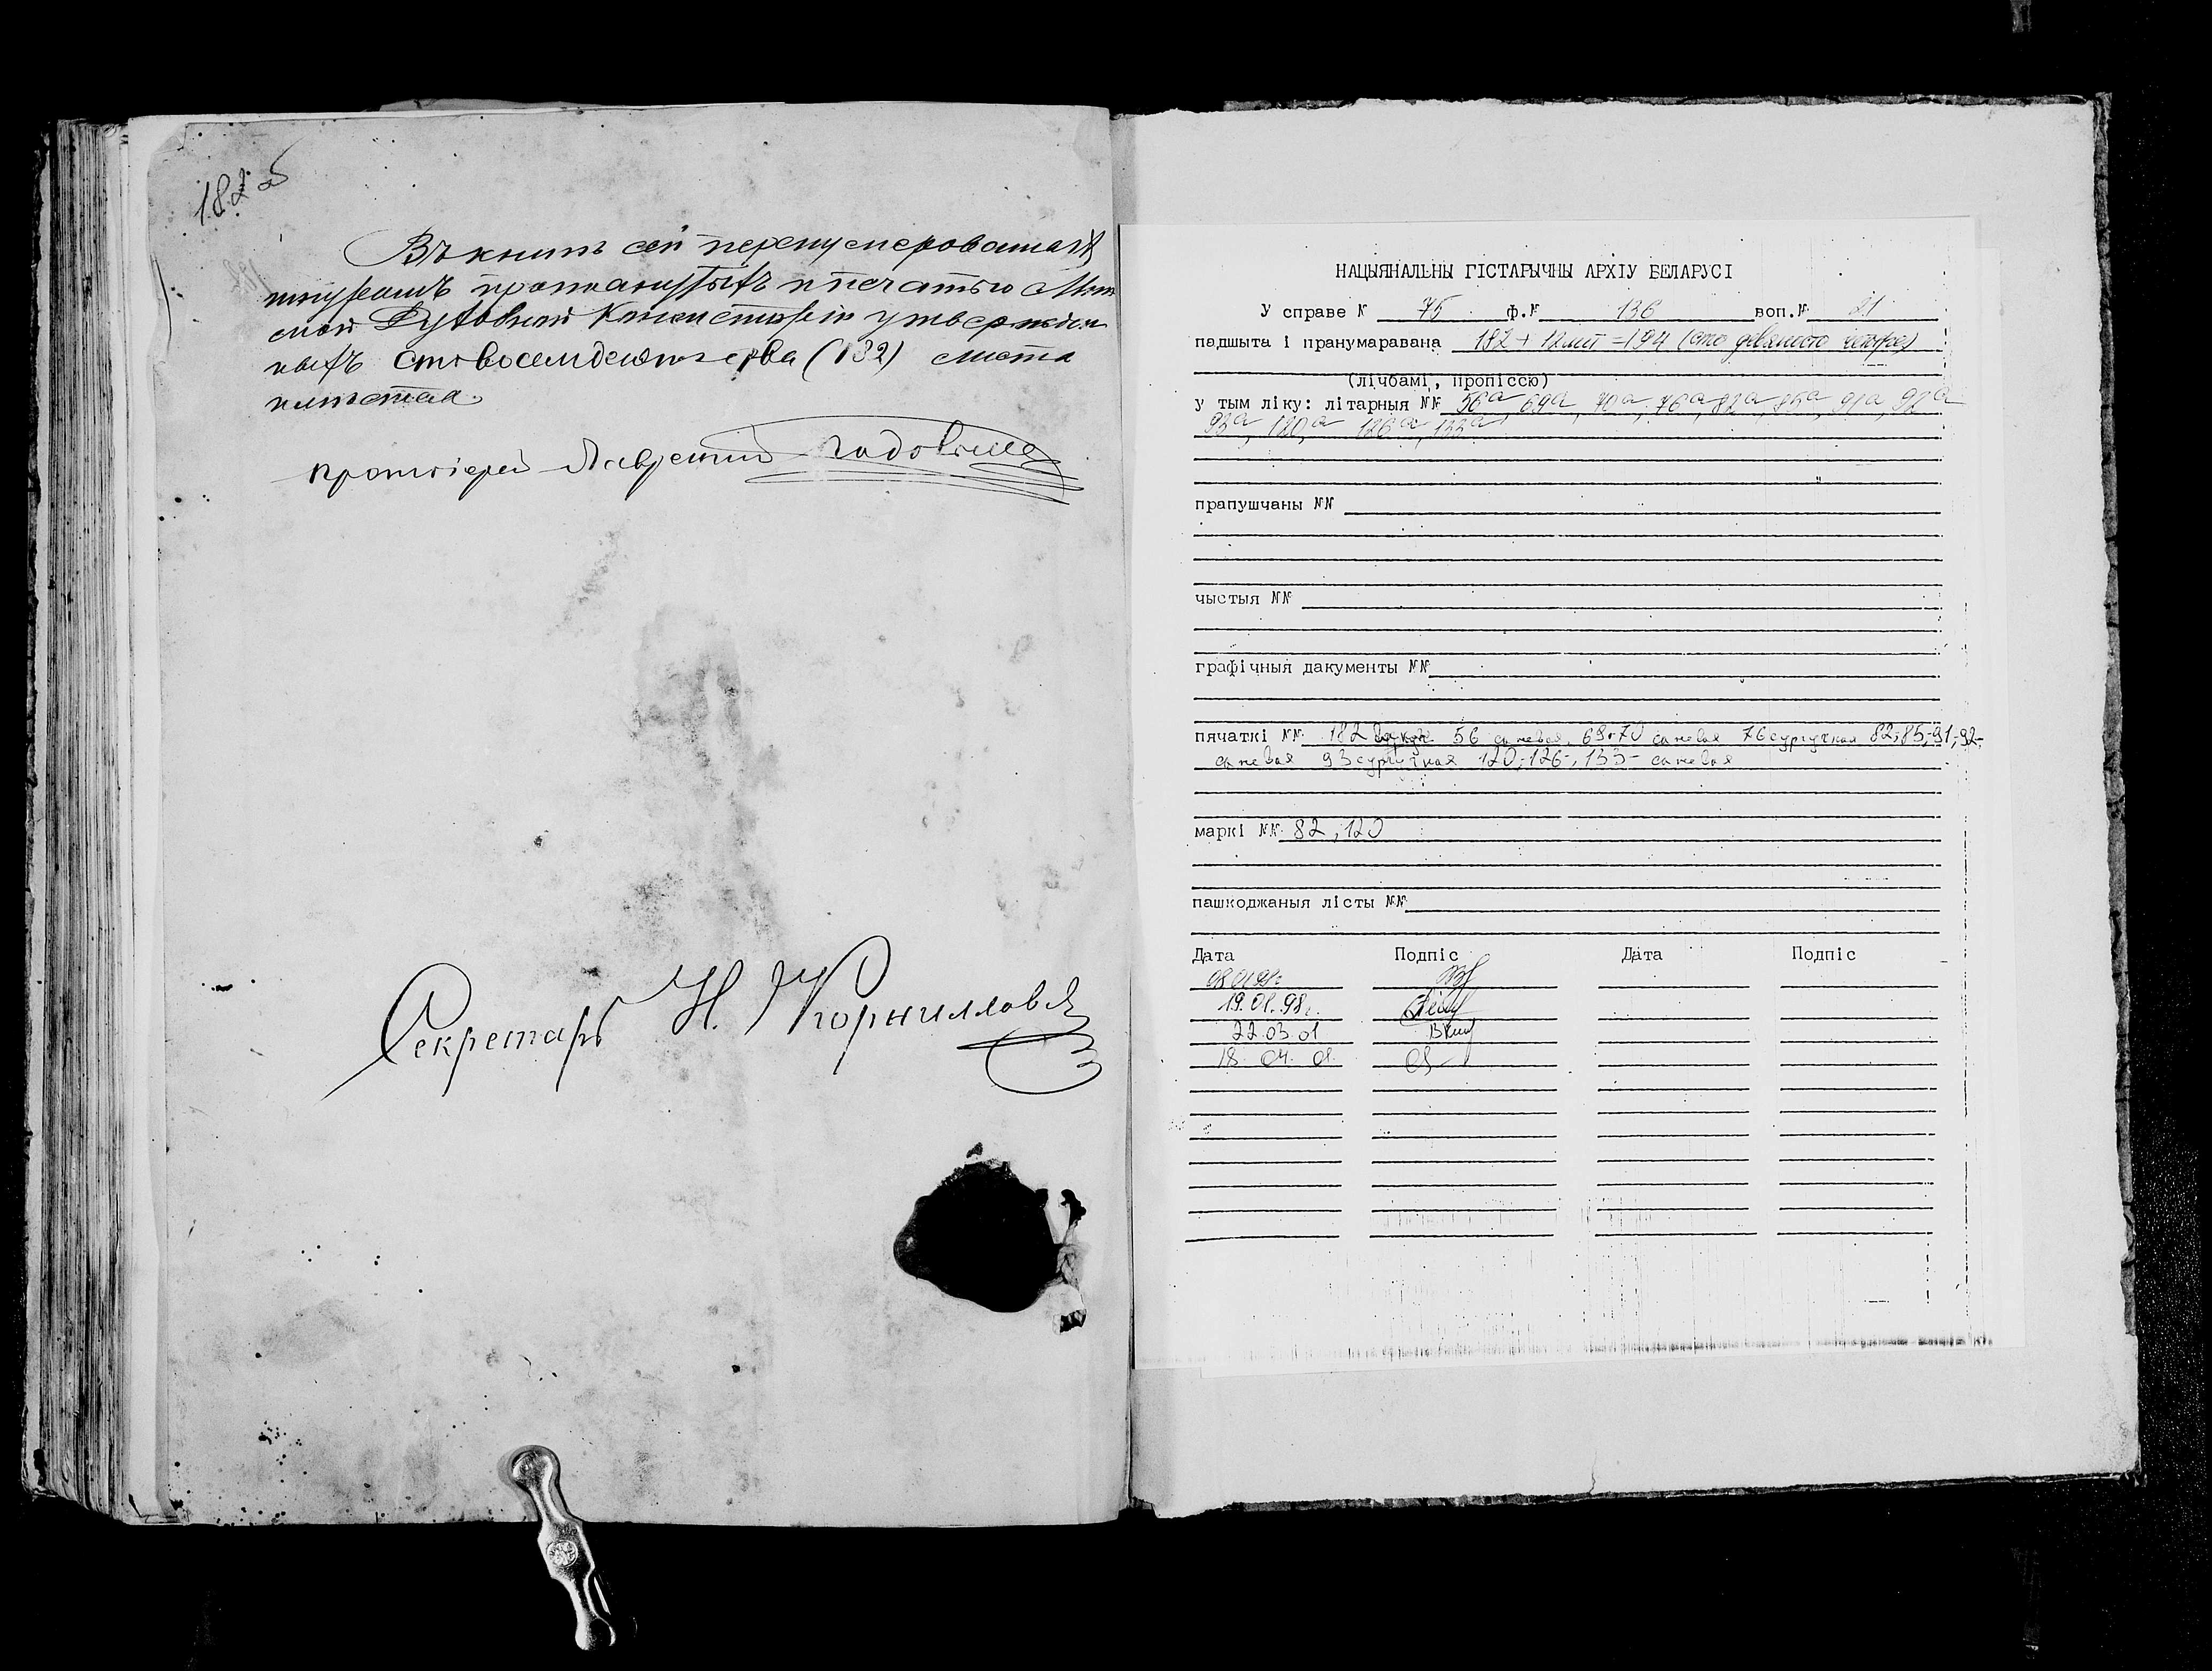 182 об
Въ книгѣ сей перенумерованныхъ
шнуромъ протянутыхъ и печатью Мин
ской Духовной Консисторіи утвержден
ныхъ сто восемьдесятъ два (182) листа
Протоіерей Лаврентій
Секретарь Н. Корниловъ
НАЦЫЯНАЛЬНЫ ГІСТАРЫЧНЫ АРХІУ БЕЛАРУСІ
У справе № 75 ф.№ 136 воп.№ 21
падшыта і пранумаравана 182 + 12 лит = 194 (сто девяносто четыре)
(лічбамі, пропіссю)
у тым ліку: літарныя №№ 56а, 69а, 70а, 76а, 82а, 85а, 91а, 92а
93а, 120а, 126а, 133а
прапушчаны №№
чыстыя №№
графічныя дакументы №№
пячаткі №№ 182 56 сажевая, 69,70 сажевая 76 сургучная 82,85,91,92-
сажевая 93 сургучная 120,126,133- сажевая
маркі №№ 82, 120
пашкоджаныя лісты №№
Дата Подпіс Дата Подпіс
19.01.98г.
22.03.01
18.04.01